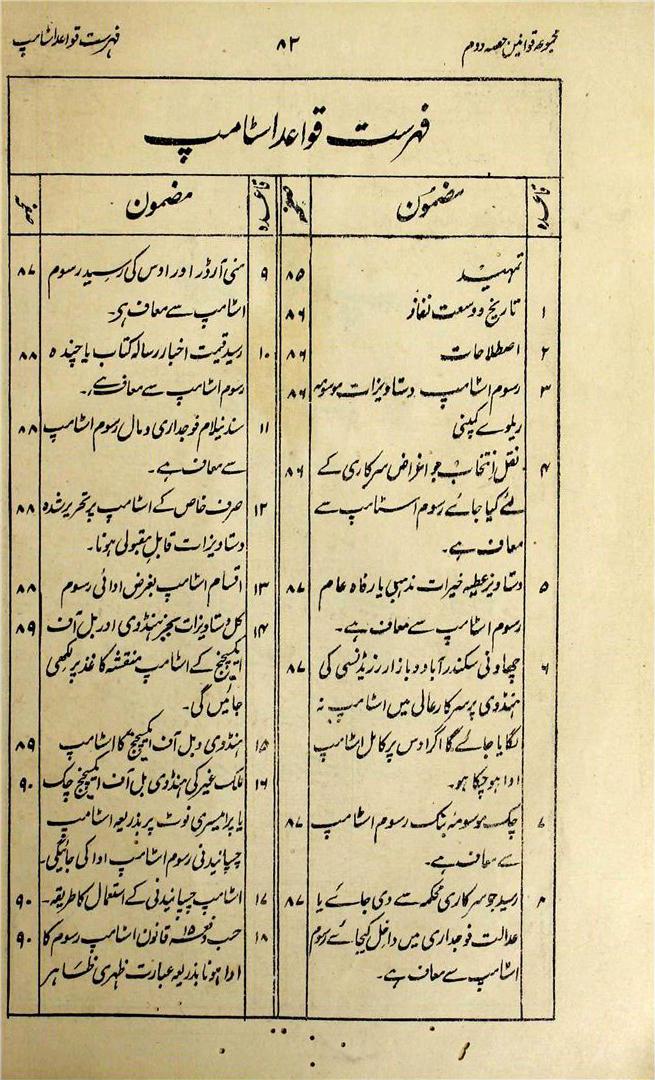 مجموعہ قوانین حصہ دوم
۸۲
فہرست قواعد اسٹامپ
فہرست قواعد اسٹامپ
قاعدہ
مضمون
صفحہ
تمہید ۸۵
۱ تاریخ و وسعت نفاذ ۸۶
۲ اصطلاحات ۸۶
۳ رسوم اسٹامپ دستاویزات موسومہ ۸۶
ریلوے کمپنی
۴ نقل انتخاب جو اغراض سرکاری کے ۸۶
لئے کیا جائے رسوم اسٹامپ سے
معاف ہے۔
۵ دستاویز عطیہ خیرات مذہبی یا رفاہ عام ۸۷
رسوم اسٹامپ سے معاف ہے۔
۶ چھاونی سکندرآباد و بازار رزیڈنسی کی ۸۷
ہنڈوی پر سرکار عالی میں اسٹامپ نہ
لگایا جائے گا اگر اوس پر کامل اسٹامپ
ادا ہو چکا ہو۔
۷ چک موسومہ بنک رسوم اسٹامپ ۸۷
سے معاف ہے۔
۸ رسید جو سرکاری محکمہ سے دی جائے یا ۸۷
عدالت فوجداری میں داخل کیجائے رسوم
اسٹامپ سے معاف ہے۔
قاعدہ
مضمون
صفحہ
۹ منی آرڈر اور اوس کی رسید رسوم ۸۷
اسٹامپ سے معاف ہے۔
۱۰ رسید قیمت اخبار رسالہ کتاب یا چندہ ۸۸
رسوم اسٹامپ سے معاف ہے۔
۱۱ سند نیلام فوجداری و مال رسوم اسٹامپ ۸۸
سے معاف ہے۔
۱۲ صرف خاص کے اسٹامپ پر تحریر شدہ ۸۸
دستاویزات قابل مقبولی ہونا۔
۱۳ اقسام اسٹامپ بغرض ادائی رسوم ۸۸
۱۴ کل دستاویزات بجز ہنڈوی اور بل آف ۸۹
ایکسچینج کے اسٹامپ منقشہ کاغذ پر لکھی
جائیں گی۔
۱۵ ہنڈوی و بل آف ایکسچینج کا اسٹامپ ۸۹
۱۶ ملک غیر کی ہنڈوی بل آف ایکسچینج چک ۹۰
یا پرامیسری نوٹ پر بذریعہ اسٹامپ
چسپانیدنی رسوم اسٹامپ ادا کی جائیگی۔
۱۷ اسٹامپ چسپانیدنی کے استعمال کا طریقہ۔ ۹۰
۱۸ حسب دفعہ ۱۵ قانون اسٹامپ رسوم کا ۹۰
ادا ہونا بذریعہ عبارت ظہری ظاہر